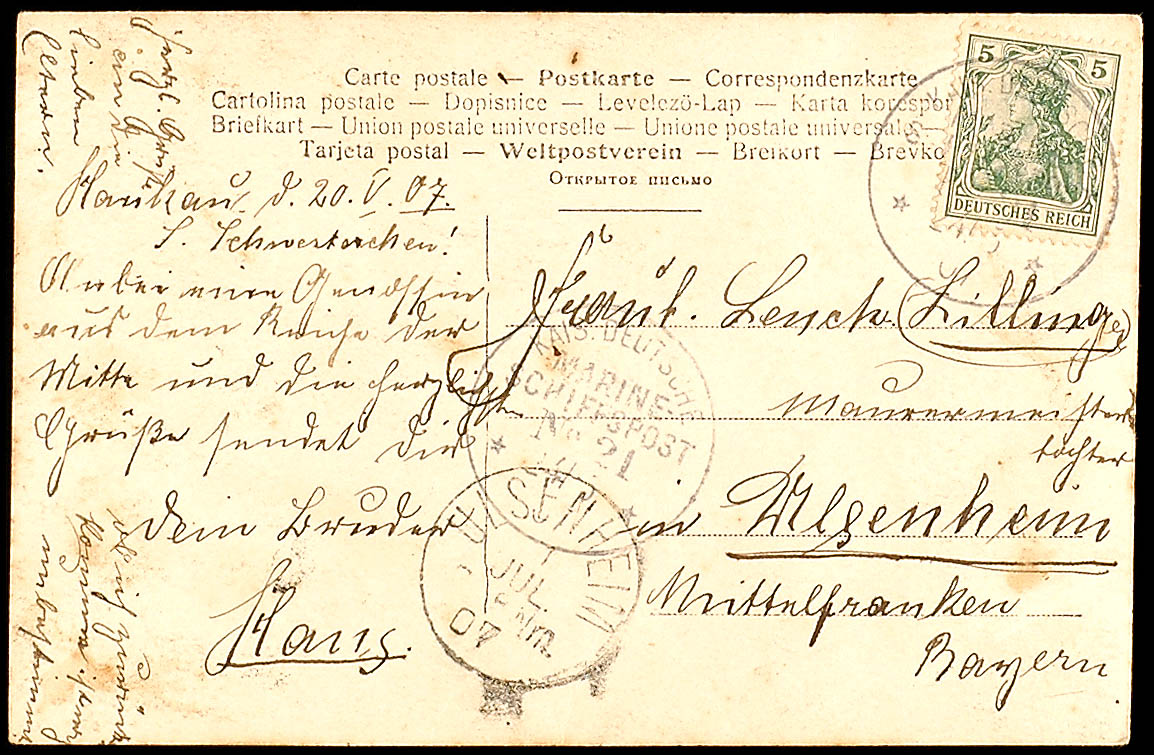 Carte postale — Postkarte — Correspondenzkarte
Cartolina postale — Dopisnice — Levelező-Lap — Karta korespor
Briefkart — Union postale universelle — Unione postale universale —
Tarjeta postal — Weltpostverein — Brefkort — Brevko
Открытое письмо
5 5
DEUTSCHES REICH
Herzl. Grüße
an die
lieben
Eltern.
Hankau, d. 20. V. 07.
L. Schwesterchen!
Anbei eine Genossin
aus dem Reiche der
Mitte und die herzlichsten
Grüße sendet dir
dein Bruder
Hans.
ob ich zurück
komme
unbestimmt
Fräul. Lench. Lillinger
Maurermeisters
tochter
in Ulsenheim
Mittelfranken
Bayern
KAIS. DEUTSCHE
MARINE-
SCHIFFSPOST
No 21
ULSENHEIM
JUL.
2-Nm.
07